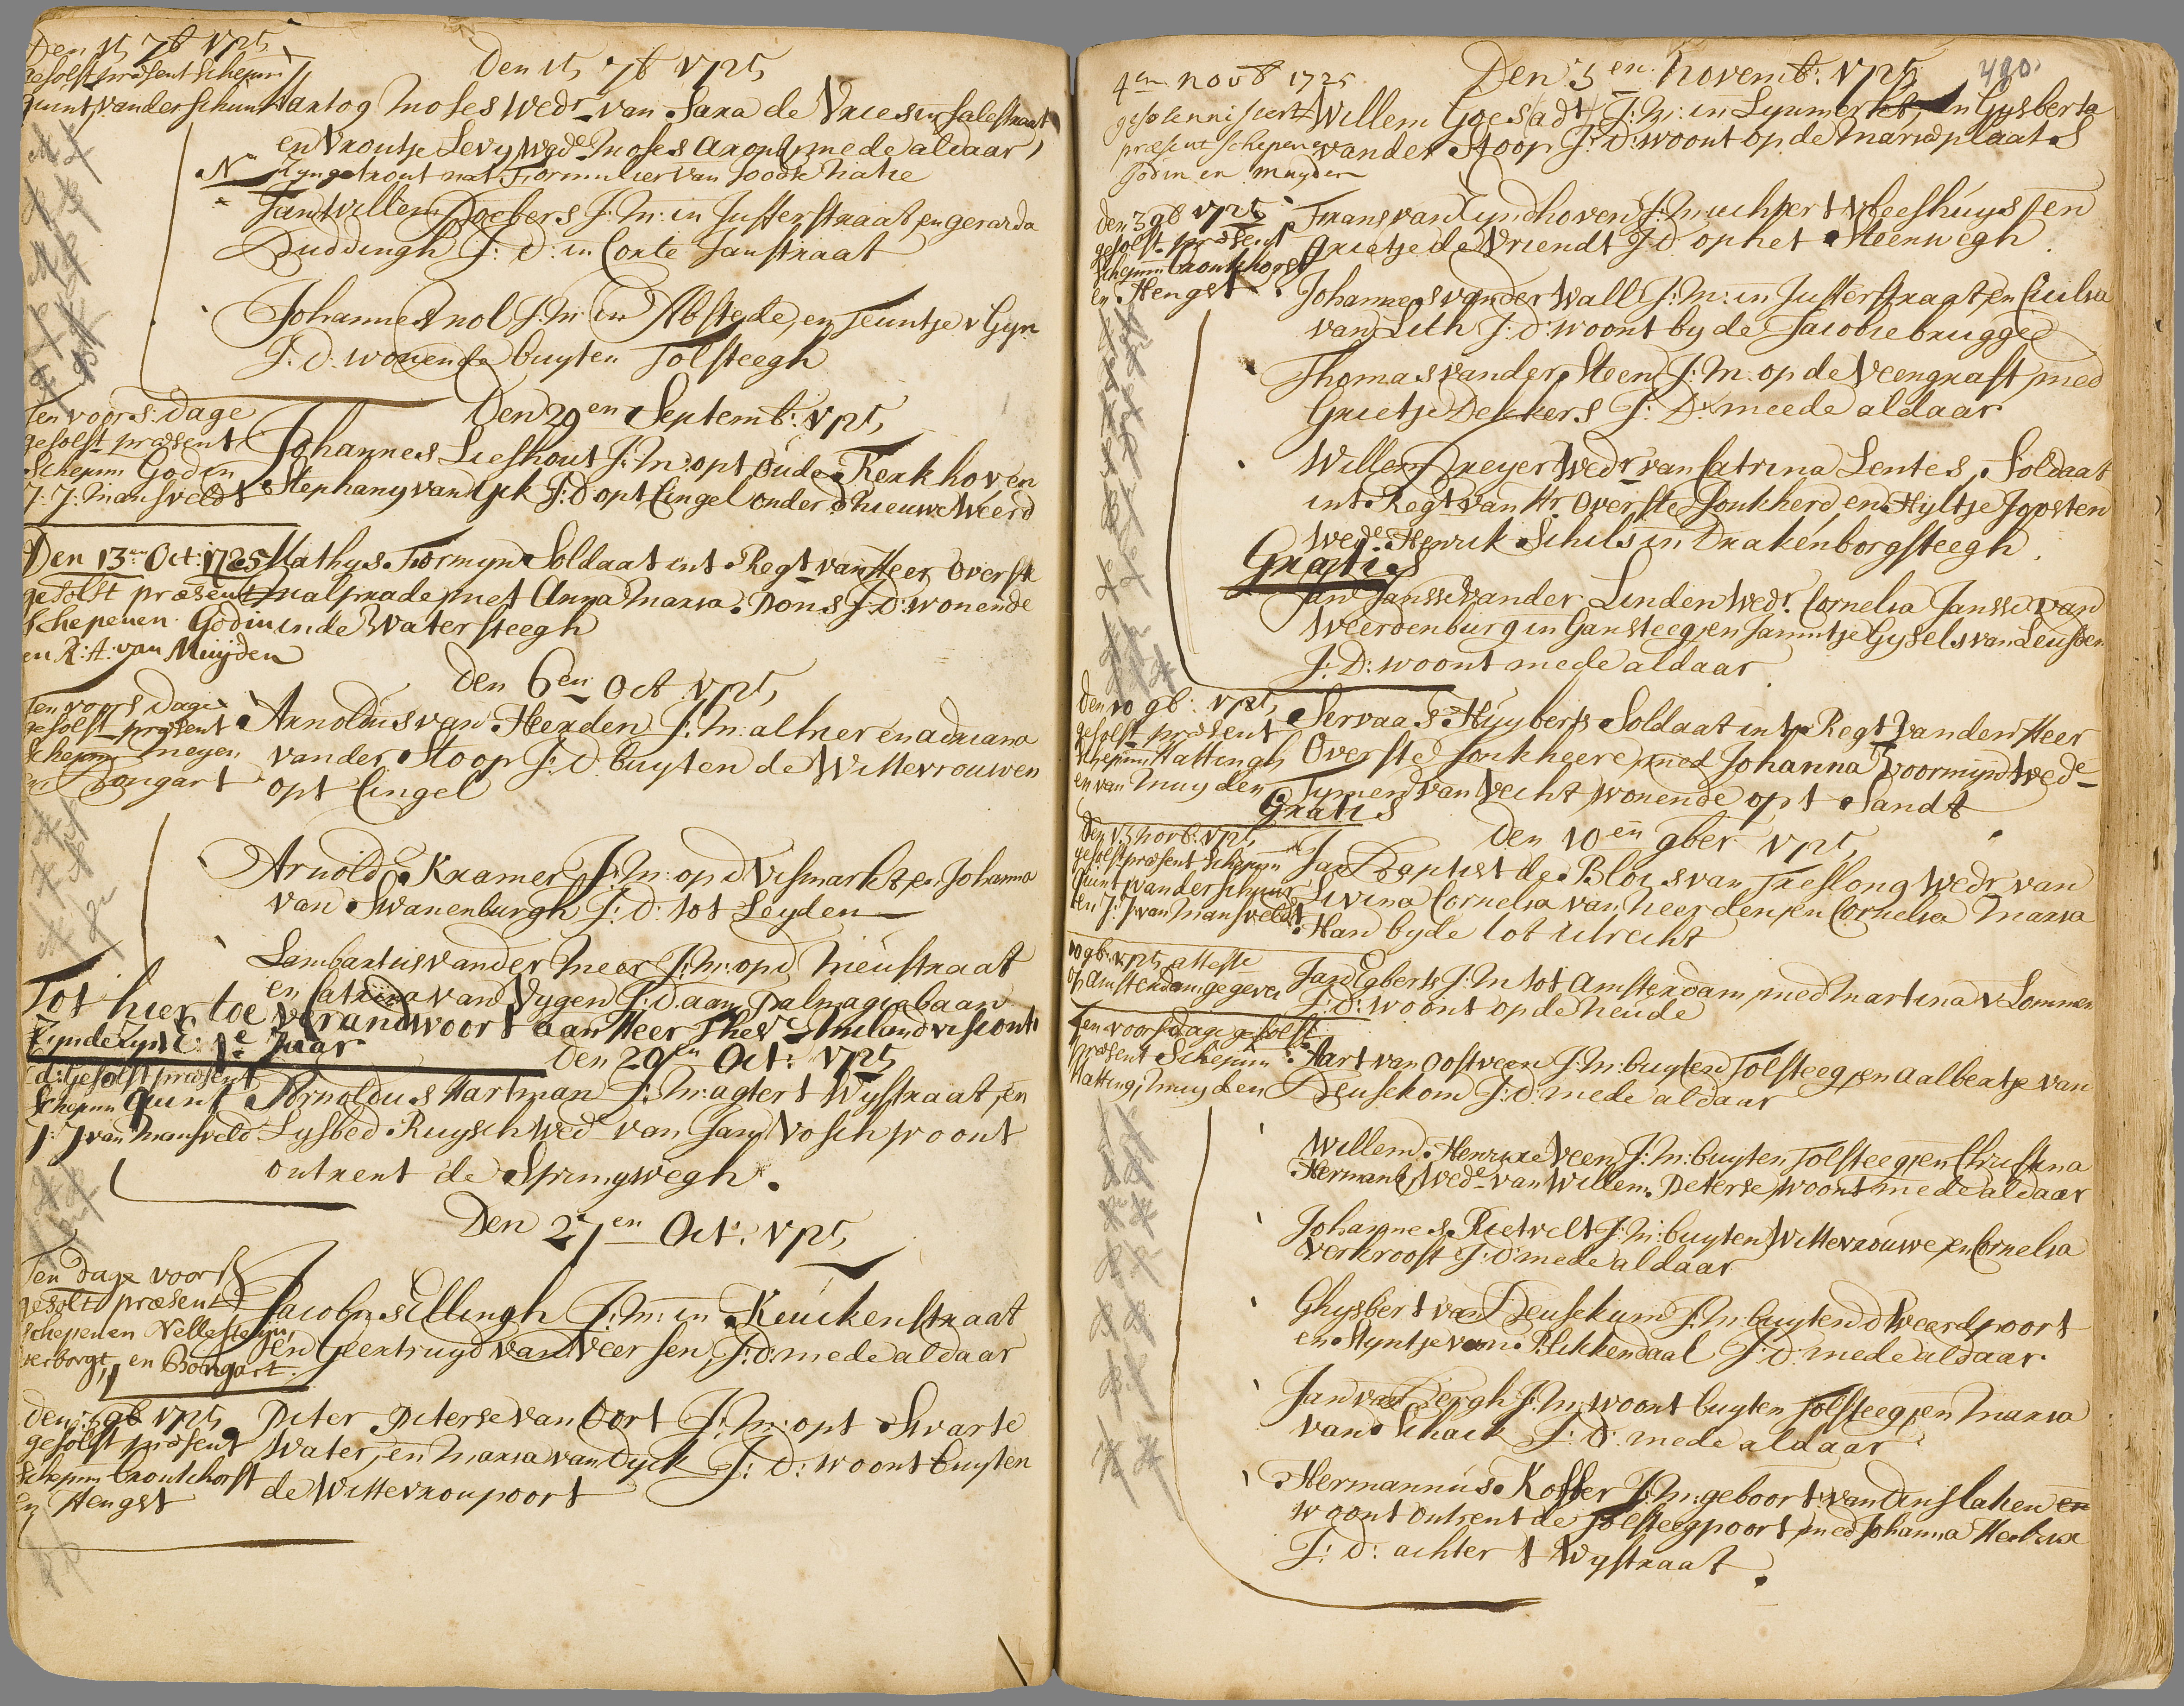 Den 15 7b 1725
gesolst præsent Schepnn
quint, vander schuur
Den 15 7b 1725
Hartog Moses Wedr van Sara de Vries in salestraat
en Vroutje Levy Wede Moses Aaront mede aldaar,
Zyn getrout met Formulier van Joodse natie
Jan Willem Doebers J: M: in Jufferstraat, en gerarda
Buddingh J: D: in Corte Janstraat
Johannes nol J: M: in Abstede, en Teuntje v Gyn
J: D: wonende buyten Tolsteegh
Ten voors: dage
gesolst præsent
Schepnn Godin
J: J: Mansveldt
Den 29en Septemb: 1725
Johannes Lieshout J: M: opt Oude Kerkhof en
Stephany van Eck J: D opt Cingel onder d'nieuwe Weerd
Den 13en Oct: 1725
gesolst præsent
Schepenen Godin
en R: A: van Muijden
Mathys Formyn Soldaat int Regt van Heer Overste
Malprade, met Anna Maria Pons J: D: wonende
inde Watersteegh
Den 6en Oct 1725
Ten voors dage
gesolst præsent
Schepnn Meyen
en Bongart
Arnoldus van Heerden J: M: alhier en adriana
vander Stoop J: D. buyten de Wittevrouwen
opt Cingel
Arnold Kramer J: M: op d Vismarkt, en Johanna
van Swanenburgh J: D: tot Leyden
Lambartus vander Meer J: M: op d Nieustraat
en Catrina van Vygen J: D. aan Malengiebaan
Tot hier toe verandwoort aan Heer Thesr Miland visconti
Zynde Zyn E: 1e Jaar
Den 20en Oct: 1725
d: gesolst præsent
Schepnn quint
J: J van Mansveld
Arnoldus Hartman J: M: agter t Wystraat, en
Lysbed Ruysch Wede van Jan Vosch woont
ontrent de Springwegh.
Den 27en Oct: 1725
Ten dage voors
gesolt præsent
Schepenen Nellesteijn,
verborgt, en Bongart.
Jacobus Ellingh J: M: in Keuckenstraat
en Geertruyd van Veersen, J: D: mede aldaar
Den 3 9b 1725
gesolst præsent
Schepnn Bronkhorst
en Hengst
Pieter Pieterse van Oort J: M: opt Swarte
Water, en Maria van Dyck J: D: woont buyten
de Wittevroupoort
4en novb 1725
gesolenniseert
præsent schepenen
Godin en Muyden
Den 3en Novemb: 1725
480.
Willem Goes (adt) J: M: in Lynmerkt, en Gysberta
vander Stoop J: D: woont op de Mariaplaats
den 3 9b 1725
gesolst præsent
Schepnn Bronkhorst
en Hengst
Frans van Eyndhoven J: M: achter t vleeshuys en
Grietje de Vriendt J: D op het Steenwegh.
Johannes vander Wall J: M: in Jufferstraat, en Cicilia
van Lith J: D: woont by de Jacobiebrugge
Thomas vander Steen J: M. op de Veengraft, med
Grietje Dekkers J: D: meede aldaar
Willem Dreyer Wedr van Catrina Lentes, Soldaat
int Regt van Hr Overste Jonkheer en Hyltje Joosten
Wede Henrik Schils in Drakenborgsteegh.
Gratis
Jan Jansse vander Linden Wedr. Cornelia Jansse van
Weerdenburg in Gansteeg, en Jannetje Gysels van Leusden
J: D: woont mede aldaar
den 10 9b: 1725
gesolst præsent
Schepnn Hattingh
en van Muyden
Servaas Huyberts Soldaat int Regt vanden Heer
Overste Jonkheere, med Johanna Voormijn Wede
Tymen van Vecht, wonende opt Sandt
Gratis
Den 10en 9ber 1725
den 15 novb: 1725
gesolst præsent Schepnn
Quint, vander schuur
en J: J van Mansveldt
Jan Baptist de Blois van Treslong Wedr van
Livina Cornelia van Neerden, en Cornelia Maria
Han byde tot Utrecht
10 9b: 1725 atteste
op Amsterdam gegeven
Jan Egberts J: M tot Amsterdam, med Martina v Lommen
J: D: woont op de Neude
Ten voors dage gesolst
præsent Schepnn
Hatting, Muyden
Aart van Oostveen J: M: buyten Tolsteeg, en Aalbertje van
Beusekom J: D: mede aldaar
Willem Henrixe Veen J: M: buyten Tolsteeg, en Christina
Hermans, Wede van Willem Peterse, woont mede aldaar
Johannes Rietvelt J: M: buyten Wittevrouwe, en Cornelia
Verkroost J: D: mede aldaar
Ghysbert van Beusekum J: M: buyten d Weerdpoort
en Myntje van Blikkendaal J: D: mede aldaar.
Jan van Bergh J: M: woont buyten Tolsteeg, en Maria
van Schaick J: D: mede aldaar
Hermannus Koffer J: M: geboort: van Dinslaken en
woont ontrent de Tolsteegpoort, med Johanna Herbers
J: D: achter t Wystraat.